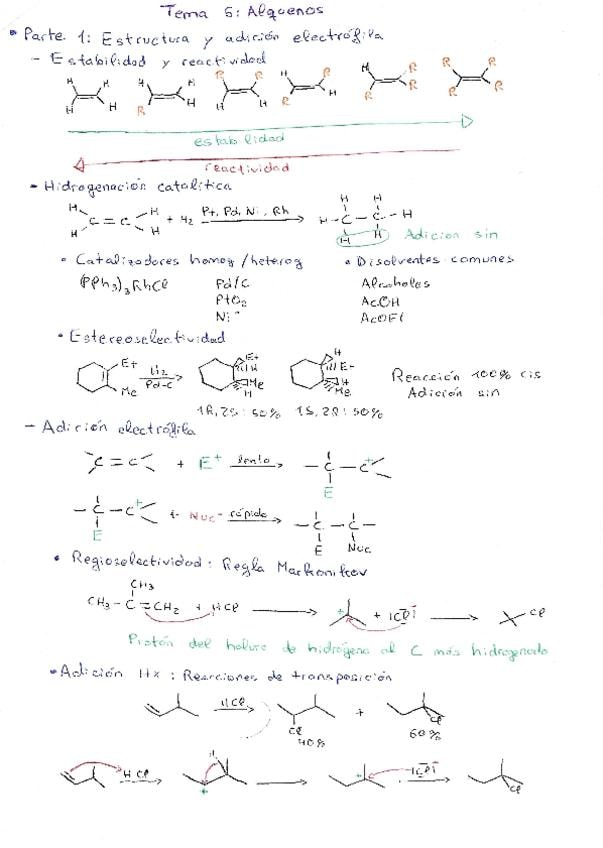 Tema 5: Alquenos
• Parte 1: Estructura y adición electrófila
- Estabilidad y reactividad
H H H H R R H R H R R R
H H R H H H R H R R R R
estabilidad
reactividad
- Hidrogenación catalítica
H H C = C H H + H2 Pt, Pd, Ni, Rh H H H - C - C - H H H Adición sin
• Catalizadores homog/heterog • Disolventes comunes
(PPh3)3RhCl Pd/C Alcoholes
PtO2 AcOH
Ni AcOEt
• Estereoselectividad
Et Me H2 Pd-C Et H Me H H Et H Me Reacción 100% cis
Adición sin
1R,2S: 50% 1S,2R: 50%
- Adición electrófila
C = C + E+ lento - C - C+ E
- C - C+ E + Nuc- rápido - C - C - E Nuc
• Regioselectividad: Regla Markonikov
CH3
CH3 - C = CH2 + HCl + + |Cl| - Cl
Protón del haluro de hidrógeno al C más hidrogenado
• Adición HX: Reacciones de transposición
HCl Cl + Cl
40% 60%
H Cl H + + |Cl| - Cl